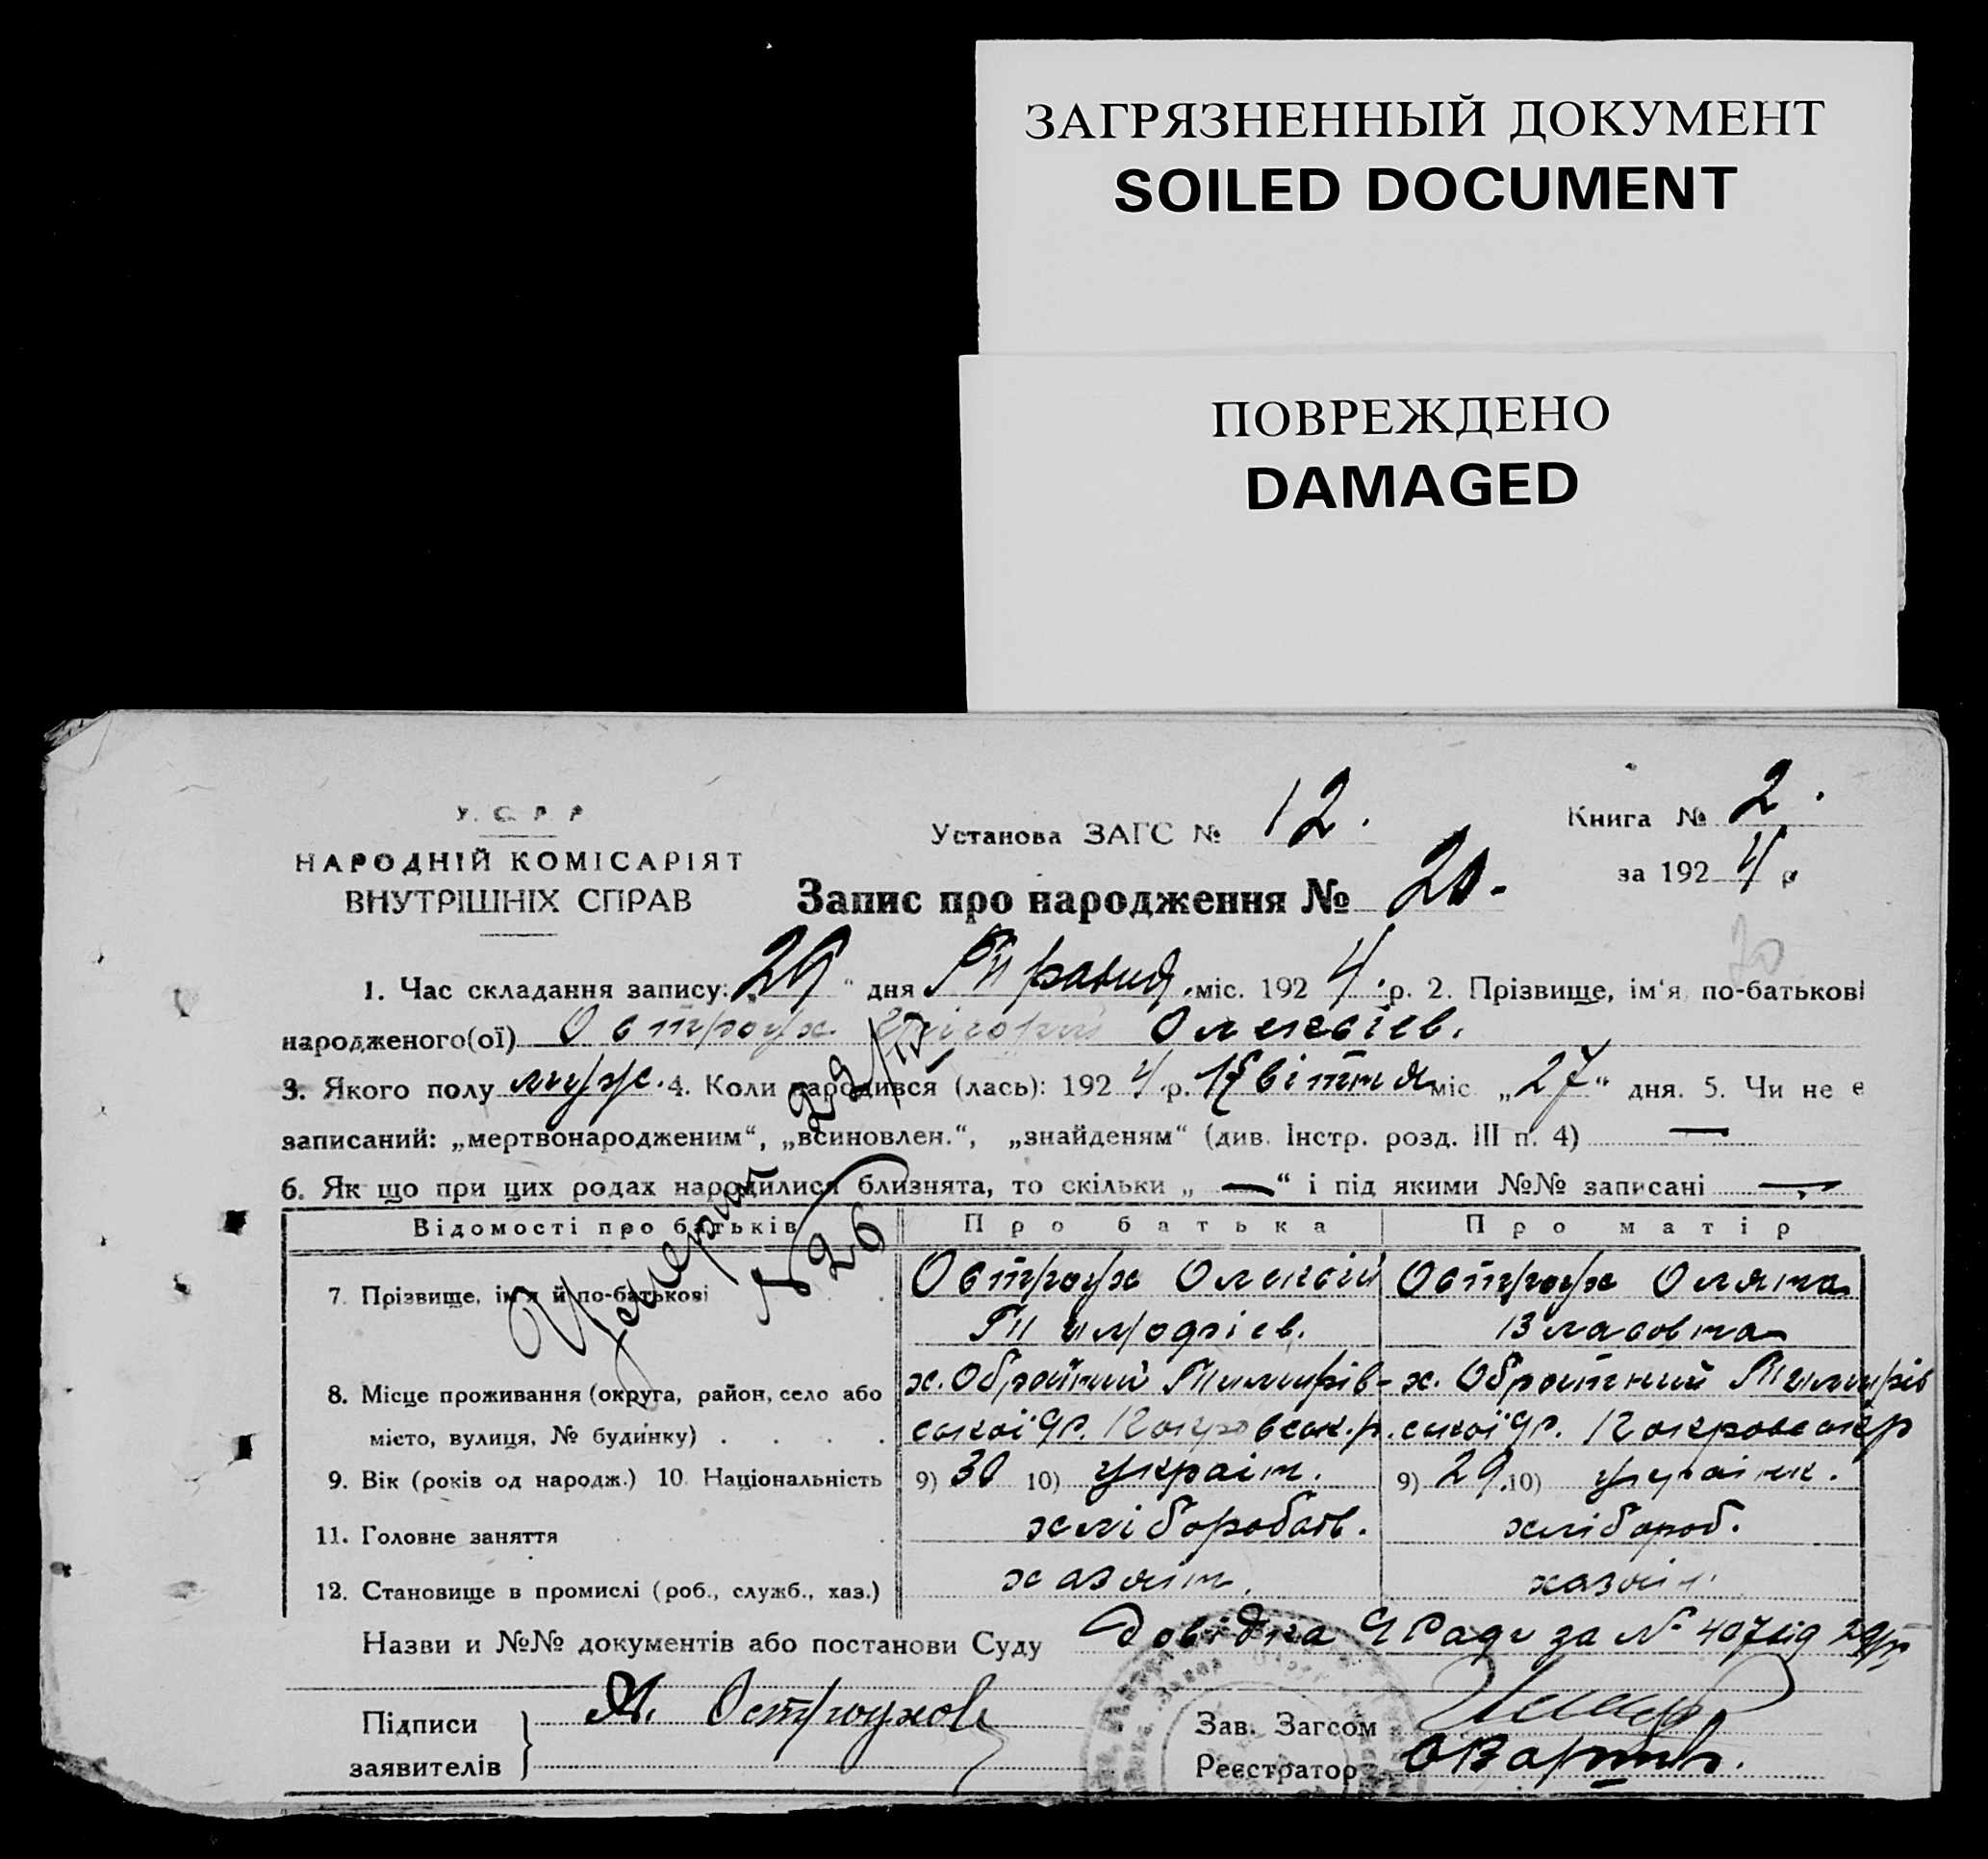 ЗАГРЯЗНЕННЫЙ ДОКУМЕНТ
SOILED DOCUMENT
ПОВРЕЖДЕНО
DAMAGED
У. С. Р. Р
НАРОДНІЙ КОМІСАРІЯТ
ВНУТРІШНІХ СПРАВ
Установа ЗАГС № 12.
Книга № 2.
за 1924 р
Запис про народження № 20.
70
1. Час складання запису: „29“ дня Травня міс. 1924 р. 2. Прізвище, ім‘я, по-батькові
народженого(ої) Остроух Григорий Олексієв.
3. Якого полу муж. 4. Коли народився (лась): 1924 р. Квітня міс „27“ дня. 5. Чи не є
записаний: „мертвонародженим“, „всиновлен.“, „знайденям“ (див. Інстр. розд. III п. 4) —
6. Як що при цих родах народилися близнята, то скільки „—“ і під якими №№ записані —
Умерший
№ 26
Відомості про батьків Про батька Про матір
7. Прізвище, ім‘я й по-батькові Остроух Олексій Остроух Оляна
Тимофієв. Власовна
8. Місце проживання (округа, район, село або х. Обратний Тимирів- х. Обратний Тимирів
місто, вулиця, № будинку) ської др. Покровськ. р. ської др. Покровськ р
9. Вік (років од народж.) 10. Національність 9) 30 10) україн. 9) 29 10) українк.
11. Головне заняття хлібороб. хлібороб.
12. Становище в промислі (роб., служб., хаз.) хазяін. хазяін
Назви и №№ документів або постанови Суду Довідка С Ради за № 407 від 29/V
Підписи
заявителів
Я. Остроухов
Зав. Загсом
Реєстратор